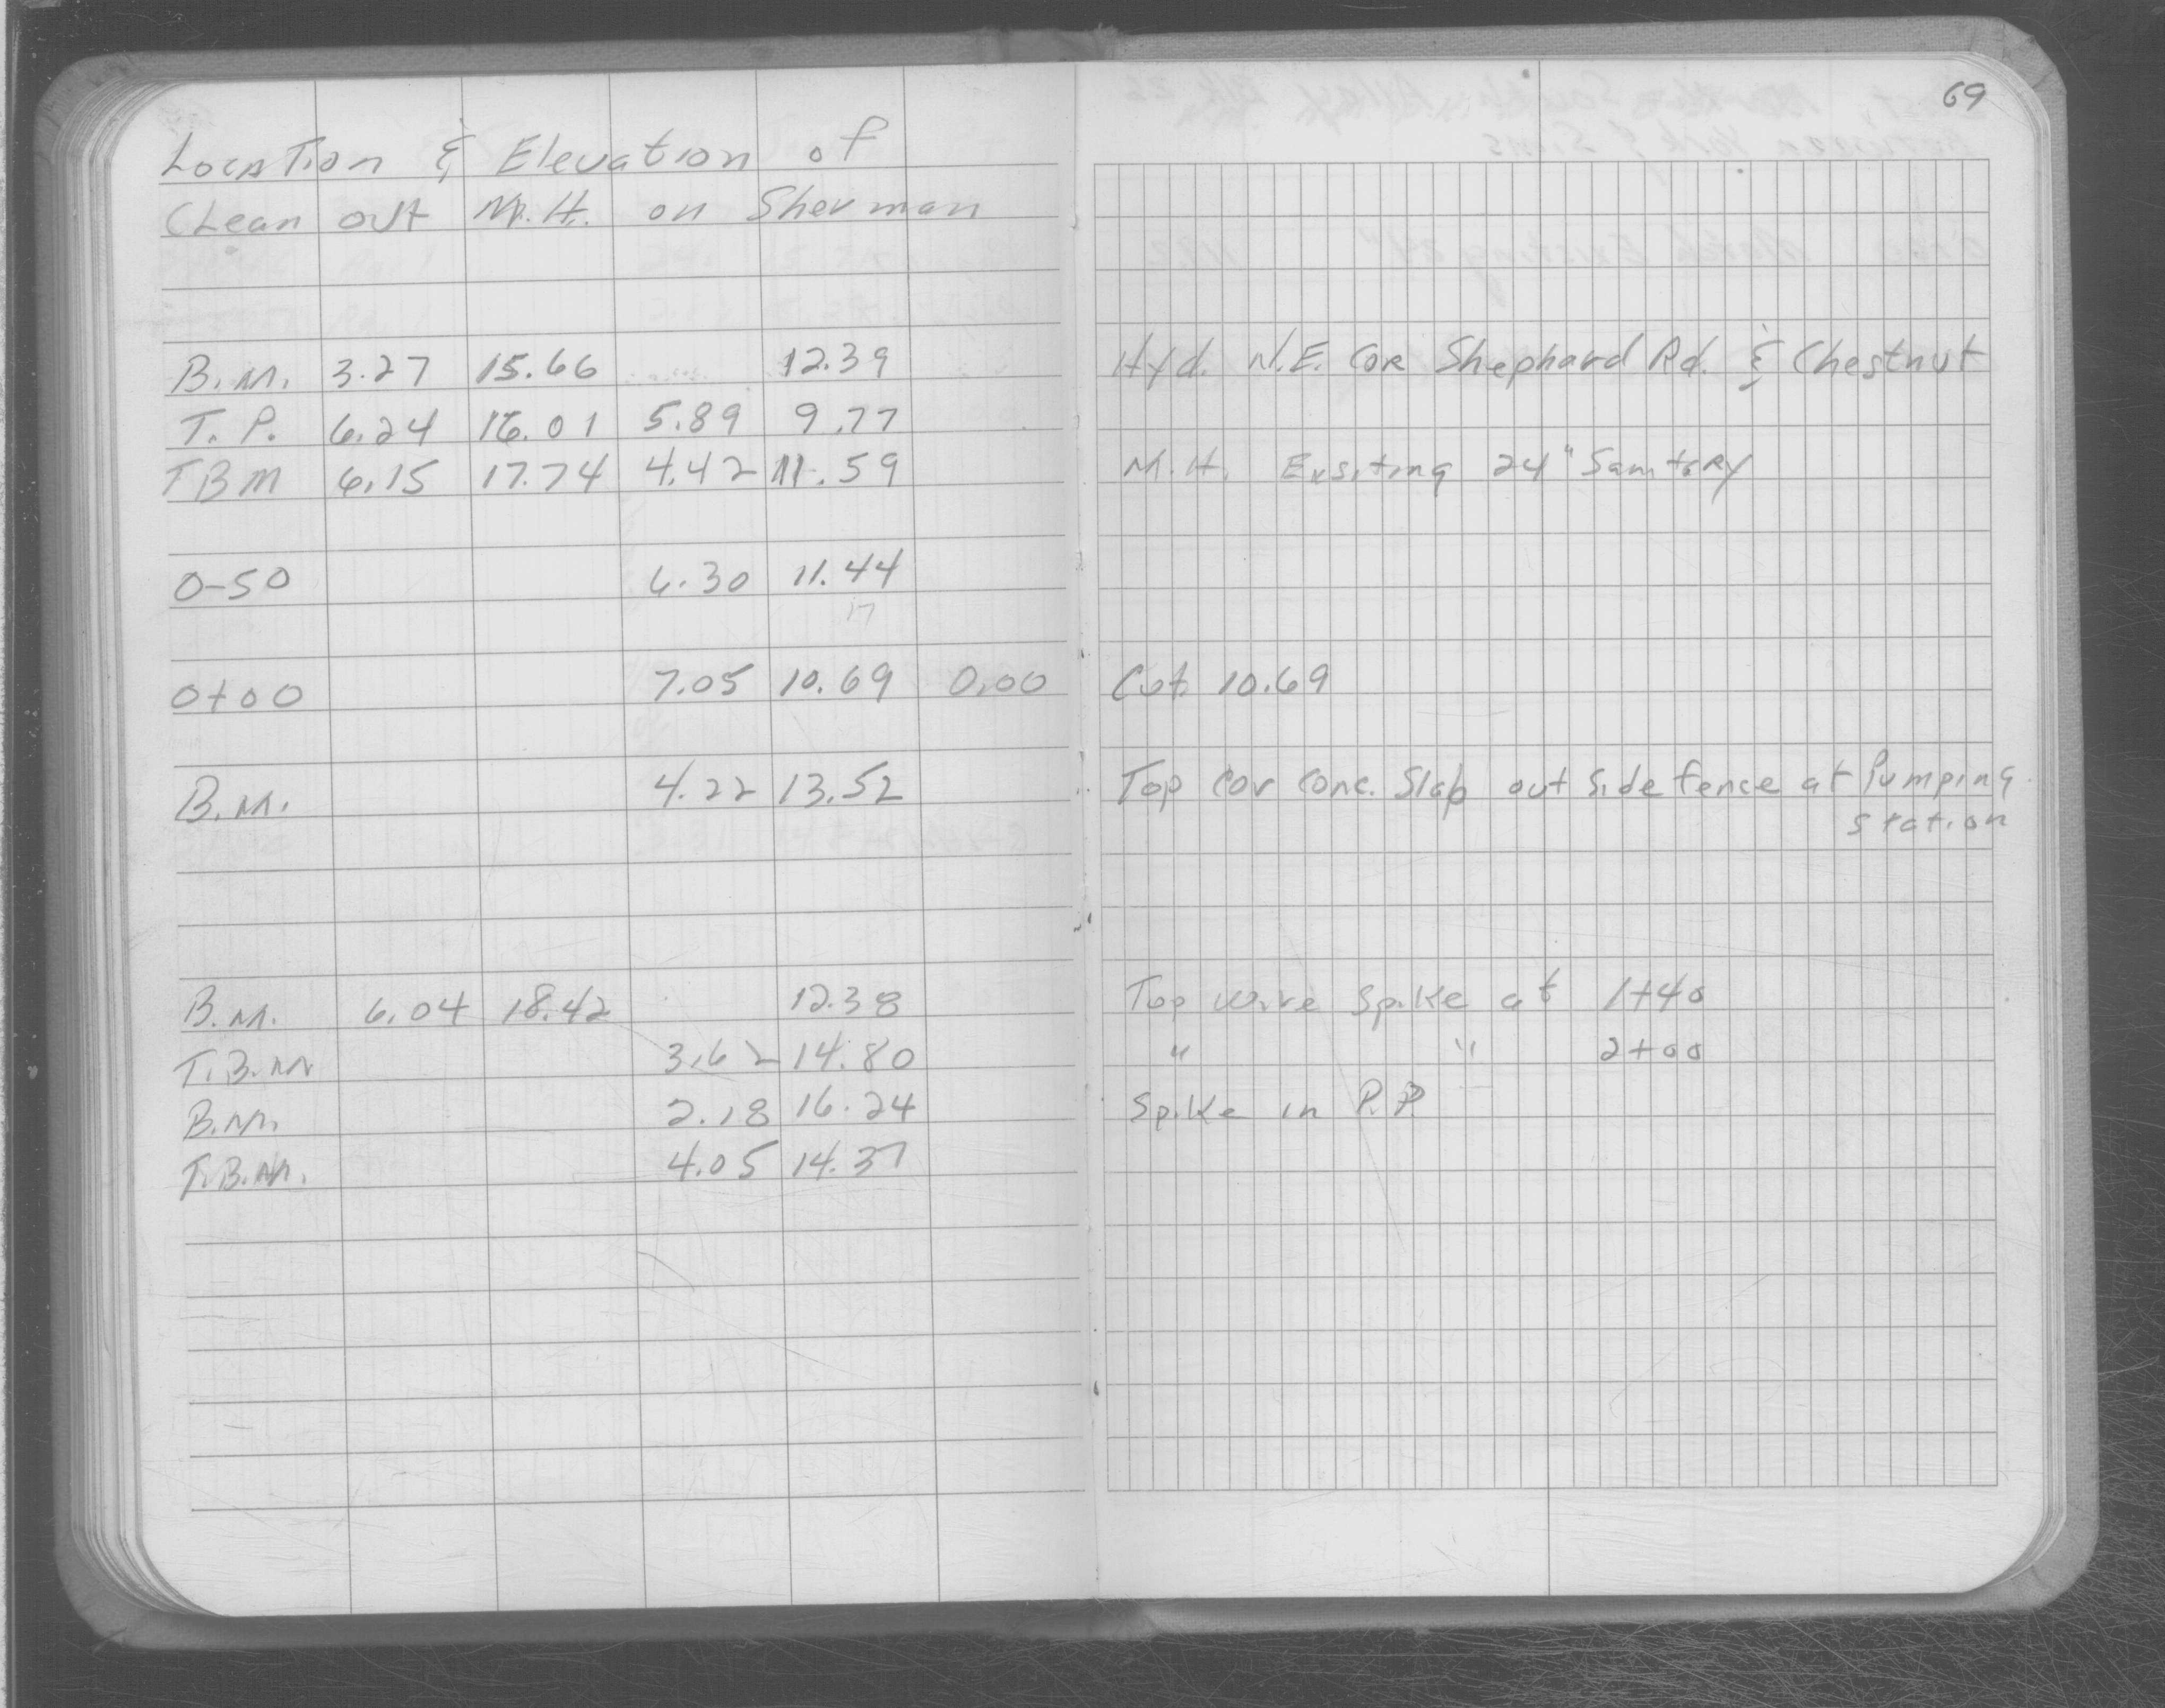 69
Location & Elevation of
Clean out M.H. on Sherman
B.M. 3.27 15.66 12.39 Hyd. N.E. Cor Shephard Rd. & Chestnut
T.P. 6.24 16.01 5.89 9.77
TBM 6.15 17.74 4.42 11.59 M.H. Exsiting 24" Sanitary
0-50 6.30 11.44
17
0+00 7.05 10.69 0.00 Cut 10.69
B.M. 4.22 13.52 Top Cor Conc. Slab out Side fence at Pumping
Station
B.M. 6.04 18.42 12.38 Top Wire Spike at 1+40
T.B.M 3.62 14.80 " " 2+00
B.M. 2.18 16.24 Spike in P.P
T.B.M. 4.05 14.37